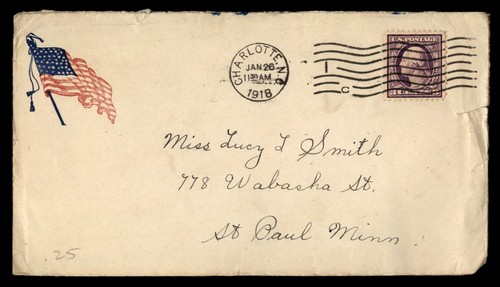 CHARLOTTE, N.C.
JAN 26
11 30 AM
1918
1
C
U.S. POSTAGE
Miss Lucy L Smith
778 Wabasha St.
St Paul Minn.
.25